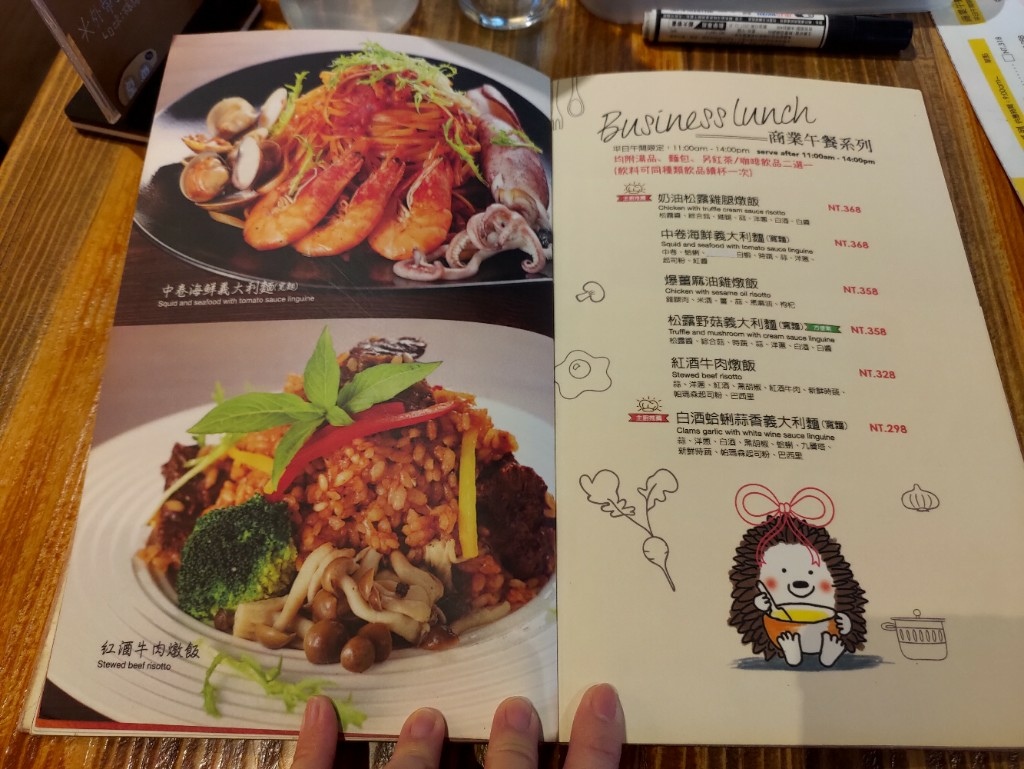 中卷海鮮義大利麵(寬麵)
Squid and seafood with tomato sauce linguine
紅酒牛肉燉飯
Stewed beef risotto
Business lunch
商業午餐系列
平日午間限定：11:00am - 14:00pm serve after 11:00am - 14:00pm
均附湯品、麵包、另紅茶/咖啡飲品二選一
(飲料可同種類飲品續杯一次)
奶油松露雞腿燉飯 NT.368
Chicken with truffle cream sauce risotto
松露醬、綜合菇、雞腿、蒜、洋蔥、白酒、白醬
中卷海鮮義大利麵(寬麵) NT.368
Squid and seafood with tomato sauce linguine
中卷、蛤蜊、白蝦、時蔬、蒜、洋蔥、
起司粉、紅醬
爆薑麻油雞燉飯 NT.358
Chicken with sesame oil risotto
雞腿肉、米酒、薑、菇、黑麻油、枸杞
松露野菇義大利麵(寬麵) NT.358
Truffle and mushroom with cream sauce linguine
松露醬、綜合菇、時蔬、蒜、洋蔥、白酒、白醬
紅酒牛肉燉飯 NT.328
Stewed beef risotto
蒜、洋蔥、紅酒、黑胡椒、紅酒牛肉、新鮮時蔬、
帕瑪森起司粉、巴西里
白酒蛤蜊蒜香義大利麵(寬麵) NT.298
Clams garlic with white wine sauce linguine
蒜、洋蔥、白酒、黑胡椒、蛤蜊、九層塔、
新鮮時蔬、帕瑪森起司粉、巴西里